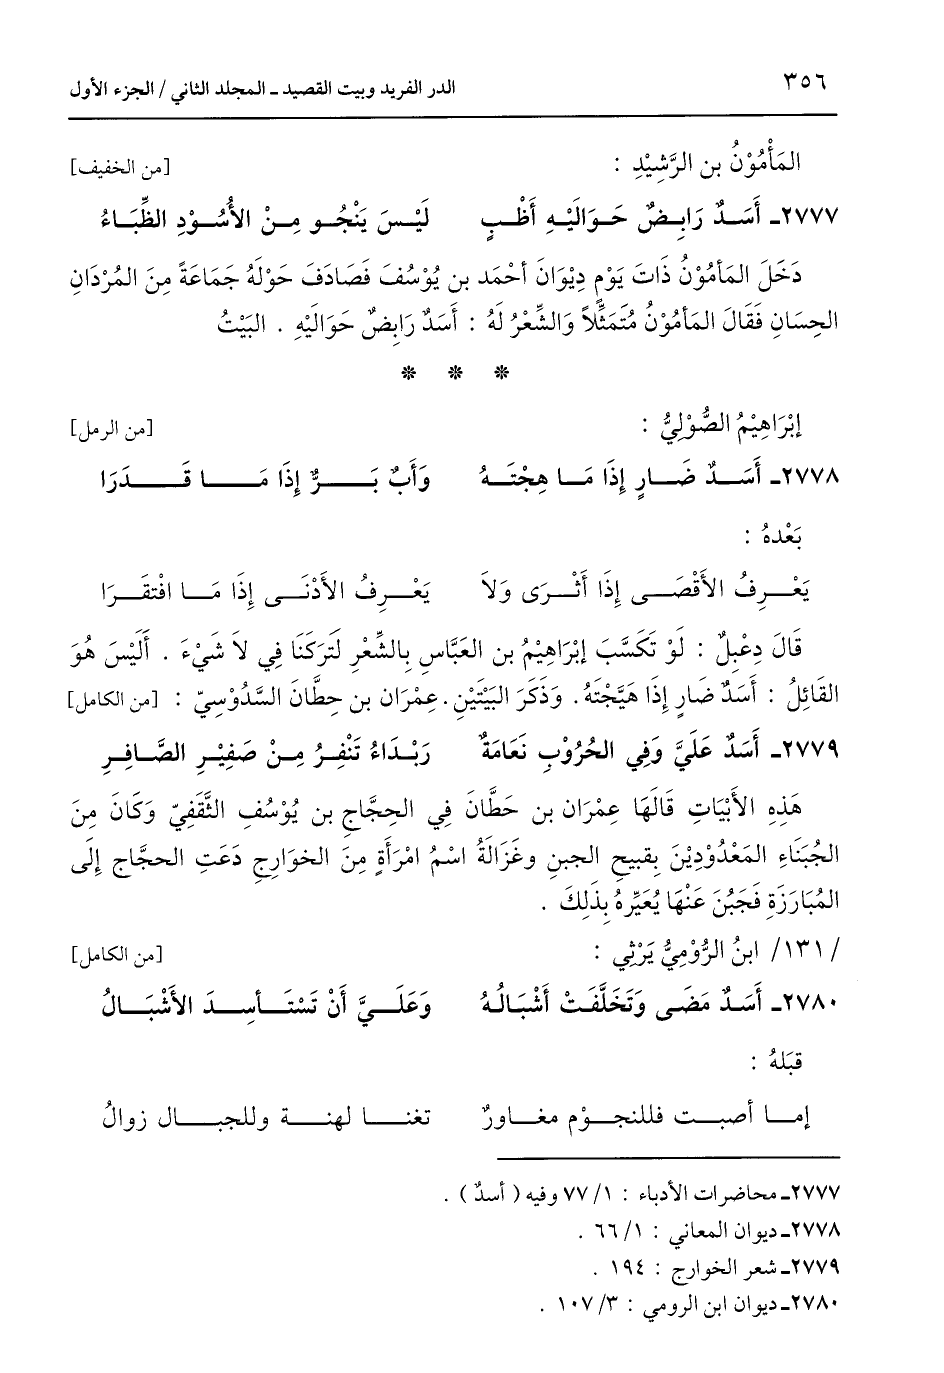 ٣٥٦ الدر الفريد وبيت القصيد ـ المجلد الثاني / الجزء الأول
المَأْمُوْنُ بن الرَّشِيْدِ : [من الخفيف]
٢٧٧٧ـ أَسَدٌ رَابِضٌ حَوَالَيْهِ أَظْبٍ لَيْسَ يَنْجُو مِنْ الأُسُوْدِ الظِّبَاءُ
دَخَلَ المَأمُوْنُ ذَاتَ يَوْمٍ دِيْوَانَ أحْمَد بن يُوْسُفَ فَصَادَفَ حَوْلَهُ جَمَاعَةً مِنَ المُرْدَانِ
الحِسَانِ فَقَالَ المَأمُوْنُ مُتَمَثِّلاً وَالشِّعْرُ لَهُ : أَسَدٌ رَابِضٌ حَوَالَيْهِ . البَيْتُ
* * *
إبْرَاهِيْمُ الصُّوْلِيُّ : [من الرمل]
٢٧٧٨ـ أَسَدٌ ضَارٍ إِذَا مَا هِجْتَهُ وَأَبٌ بَرٌّ إِذَا مَا قَدَرَا
بَعْدهُ :
يَعْرِفُ الأَقْصَى إِذَا أَثْرَى وَلاَ يَعْرِفُ الأَدْنَى إِذَا مَا افْتقَرَا
قَالَ دِعْبِلٌ : لَوْ تَكَسَّبَ إبْرَاهِيْمُ بن العَبَّاسِ بِالشِّعْرِ لَتَرَكَنَا فِي لاَ شَيْءَ . أَلَيْسَ هُوَ
القَائِلُ : أَسَدٌ ضَارٍ إِذَا هَيَّجْتَهُ. وَذَكَرَ البَيْتَيْنِ. عِمْرَان بن حِطَّانَ السَّدُوْسِيّ : [من الكامل]
٢٧٧٩ـ أَسَدٌ عَلَيَّ وَفِي الحُرُوْبِ نَعَامَةٌ رَبْدَاءُ تَنْفِرُ مِنْ صَفِيْرِ الصَّافِرِ
هَذِهِ الأَبْيَاتِ قَالَهَا عِمْرَان بن حَطَّانَ فِي الحِجَّاجِ بن يُوْسُفِ الثَّقَفِيّ وَكَانَ مِنَ
الجُبَنَاءِ المَعْدُوْدِيْنَ بِقَبِيحِ الجبنِ وغَزَالَةُ اسْمُ امْرَأَةٍ مِنَ الخوارجِ دَعَتِ الحجَّاج إلَى
المُبَارَزَةِ فَجَبُنَ عَنْهَا يُعَيِّرهُ بِذَلِكَ .
/ ١٣١/ ابنُ الرُّوْمِيُّ يَرْثِي : [من الكامل]
٢٧٨٠ـ أَسَدٌ مَضَى وَتَخَلَّفَتْ أَشْبَالُهُ وَعَلَيَّ أَنْ تَسْتَأسِدَ الأَشْبَالُ
قبَلهُ :
إما أصبت فللنجوْم مغاورٌ تغنا لهنة وللجبال زوالُ
٢٧٧٧ـ محاضرات الأدباء : ١/ ٧٧ وفيه ( أسدٌ ) .
٢٧٧٨ـ ديوان المعاني : ١/ ٦٦ .
٢٧٧٩ـ شعر الخوارج : ١٩٤ .
٢٧٨٠ـ ديوان ابن الرومي : ٣/ ١٠٧ .